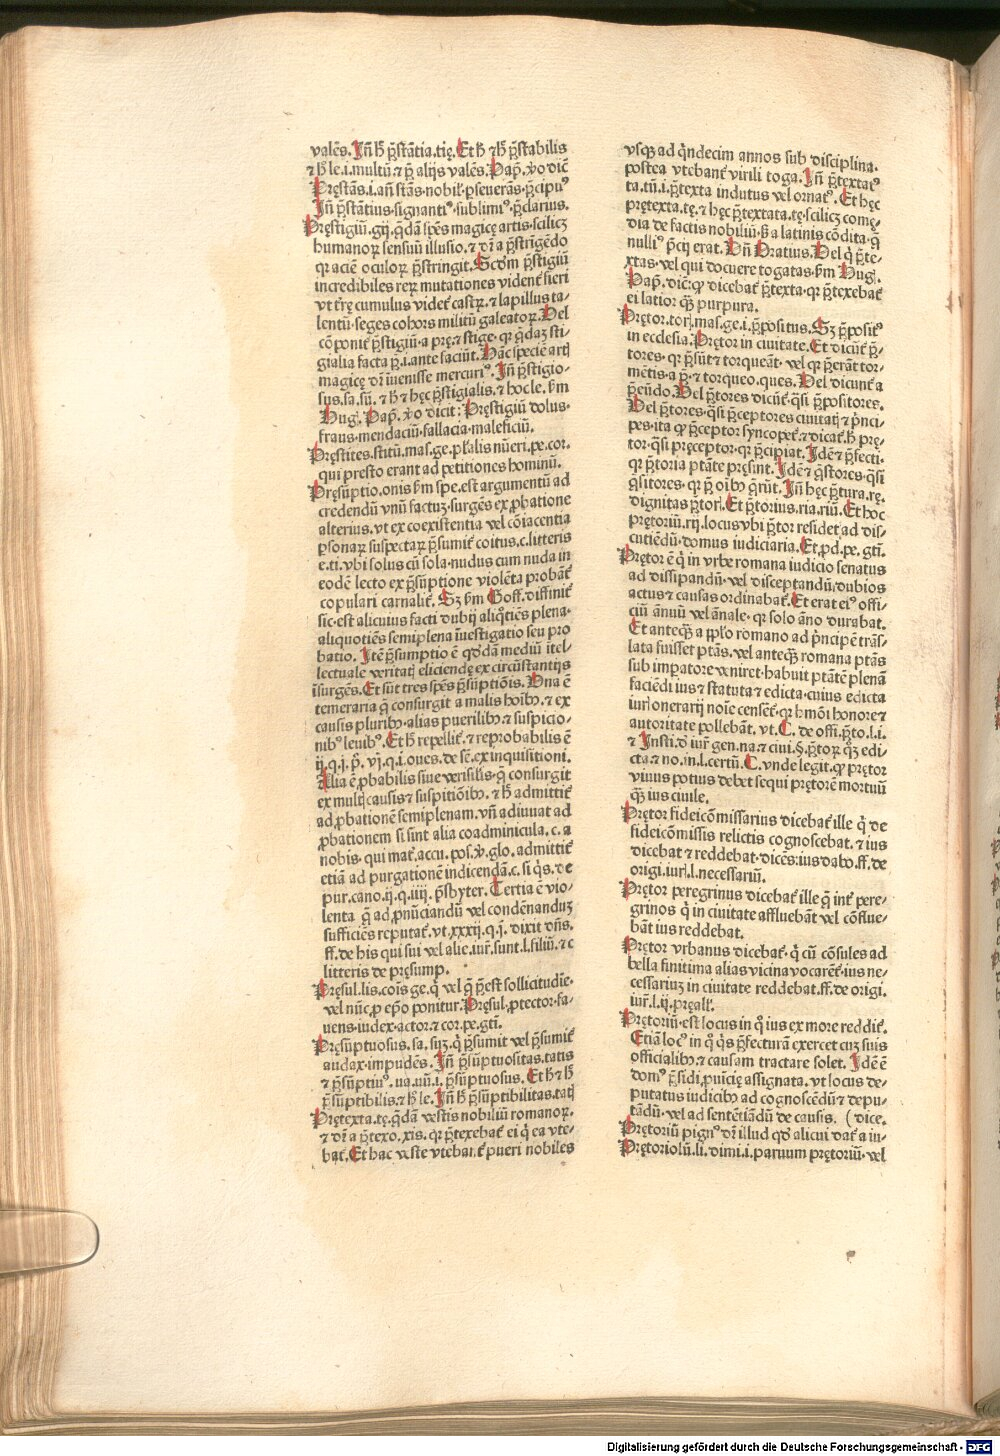 valēs. Jn̄ h̄ p̄stātia.tię. Et h̄ ⁊ h̄ p̄stabilis
⁊ h̄ le.i.multū ⁊ p̄ alijs valēs. Pap̄. v̊o dic̄
Pręstās.i.an̄ stās.nobil'.ꝑseuerās.p̄cipuꝰ
Jn̄ p̄stātius.signantiꝰ.sublimiꝰ.p̄clarius.
Pręstigiū.gij.q̄dā sp̄es magicę artis.scilicꝫ
humanoꝝ sensuū illusio.⁊ dr̄ a p̄strīgēdo
qꝛ aciē oculoꝝ p̄stringit. Scd̄m p̄stigiū
incredibiles reꝝ mutationes vident̄ fieri
vt trę cumulus videt̄ castꝝ.⁊ lapillus ta-
lentū.seges cohors militū galeatoꝝ. Vel
cōponit̄ p̄stigiū.a prę.⁊ stige.qꝛ q̄daꝫ sti-
gialia facta p̄.i.ante faciūt. Hāc speciē artꝭ
magicę dr̄ īuenisse mercuriꝰ. Jn̄ p̄stigio-
sus.sa.sū. ⁊ h̄ ⁊ hęc p̄stigialis.⁊ hoc le. s̄m
Hug. Pap̄. v̊o dicit: Pręstigiū dolus.
fraus.mendaciū.fallacia.maleficiū.
Pręstites.stitū.mas.ge.pl'alis nūeri.pe.cor.
qui presto erant ad petitiones hominū.
Pręsūptio.onis s̄m spe.est argumentū ad
credendū vnū factuꝫ.surgēs ex ꝓbatione
alterius.vt ex coexistentia vel cōiacentia
ꝑsonaꝝ suspectaꝝ p̄sumit̄ coitus.c.litteris
e.ti.vbi solus cū sola.nudus cum nuda in
eodē lecto ex p̄sūptione violēta probāt̄
copulari carnalit̄. Sꝫ s̄m Goff. diffinit̄
sic.est alicuius facti dubij aliq̄tiēs plena.
aliquotiēs semiplena īuestigatio seu pro
batio. Jtē p̄sumptio ē qd̄dā mediū itel-
lectuale veritatꝭ eliciendę ex circūstantijs
īsurgēs. Et sūt tres sp̄es p̄sūptiōis. Una ē
temeraria q̄ consurgit a malis hoīb₉.⁊ ex
causis plurib₉.alias puerilib₉ ⁊ suspicio-
nib₉ leuib₉. Et h̄ repellit̄.⁊ reprobabilis ē
ij.q.j.p̄. vj.q.i.oues.de sē.ex inquisitioni.
Alia ē ꝓbabilis siue verisilis.q̄ consurgit
ex multꝭ causis ⁊ suspitiōib₉. ⁊ h̄ admittit̄
ad ꝓbationē semiplenam.vn̄ adiuuat ad
ꝓbationem si sint alia coadminicula.c.a
nobis.qui mat̄.accu.pos.v̊.glo.admittit̄
etiā ad purgationē indicendā.c.si q̄s.de
pur.cano.ij.q.iiij.p̄sbyter. Tertia ē vio-
lenta q̄ ad ꝓnūciandū vel condēnanduꝫ
sufficiēs reputat̄.vt.xxxij.q.j.dixit dn̄s.
ff.de his qui sui vel alie.iur̄.sunt.l.filiū.⁊ c
litteris de pręsump.
Pręsul.lis.cōis ge.q̄ vel q̄ p̄est sollicitudīe.
vel nūc ꝓ ep̄o ponitur. Pręsul.ꝓtector.fa-
uens.iudex.actor.⁊ cor.pe.gtī.
Pręsūptuosus.sa.suꝫ.q̄ p̄sumit vel p̄sumit̄
audax.impudēs. Jn̄ p̄sūptuositas.tatis
⁊ p̄sūptiuꝰ.ua.uū.i.p̄sūptuosus. Et h̄ ⁊ h̄
p̄sūptibilis.⁊ h̄ le. Jn̄ h̄ p̄sūptibilitas.tatꝭ
Prętexta.tę.q̄dā vestis nobiliū romanoꝝ.
⁊ dr̄ a p̄texo.xis.qꝛ p̄texebat̄ ei q̄ ea vte-
bat̄. Et hac veste vtebāt̄ pueri nobiles
vsqꝫ ad q̄ndecim annos sub disciplina.
postea vtebant̄ virili toga. Jn̄ p̄textatꝰ
ta.tū.i.p̄texta indutus vel ornatꝰ. Et hęc
prętexta.tę.⁊ hęc p̄textata.tę.scilicꝫ comę-
dia de factis nobiliū.s̄ a latinis cōdita.q̄
nulliꝰ p̄cij erat. Vn̄ Oratius. Vel q̄ p̄te-
xtas.vel qui docuere togatas.s̄m Hug.
Pap̄. dic̄.ꝙ dicebat̄ p̄texta.qꝛ p̄texebat̄
ei latior qꝫ purpura.
Prętor.torꝭ.mas.ge.i.p̄positus. Sꝫ p̄positꝰ
in ecclesia. Prętor in ciuitate. Et dicūt̄ p̄-
tores.qꝛ p̄sūt ⁊ torqueāt. vel qꝛ p̄erāt tor-
mētis.a p̄.⁊ torqueo.ques. Vel dicunt̄ a
p̄eūdo. Vel p̄tores dicūt̄.q̄si p̄positores.
Vel p̄tores.q̄si p̄ceptores ciuitatꝭ ⁊ p̄nci-
pes.ita ꝙ p̄ceptor syncopet̄.⁊ dicat̄.h̄ prę-
tor.q̄si pręceptor.qꝛ p̄cipiat. Jdē ⁊ p̄fecti.
qꝛ p̄toria ptāte pręsint. Jdē ⁊ q̄stores.q̄si
q̄sitores.qꝛ p̄ oīb₉ q̄rūt. Jn̄ hęc p̄tura.rę.
dignitas p̄torꝭ. Et p̄torius.ria.riū. Et hoc
prętoriū.rij.locus vbi p̄tor residet ad dis-
cutiēdū.domus iudiciaria. Et ꝓd.pe.gtī.
Prętor ē q̄ in vrbe romana iudicio senatus
ad dissipandū.vel disceptandū.dubios
actus ⁊ causas ordinabat̄. Et erat eiꝰ offi-
ciū ānuū vel ānale.qꝛ solo āno durabat.
Et anteqꝫ a pplo romano ad p̄ncipē trās-
lata fuisset ptās. vel anteqꝫ romana ptās
sub imꝑatore veniret.habuit ptātē plenā
faciēdi ius ⁊ statuta ⁊ edicta.cuius edicta
iurꝭ onerarij noīe censēt̄.qꝛ hmōi honore ⁊
autoritate pollebāt. vt. C. de offi.p̄to.l.i.
⁊ Insti.d' iur̄ gen.na.⁊ ciui.§.p̄toꝝ qꝫ edi-
cta.⁊ no.in.l.certū. C. vnde legit̄. ꝙ prętor
viuus potius debet sequi prętorē mortuū
qꝫ ius ciuile.
Prętor fideicōmissarius dicebat̄ ille q̄ de
fideicōmissis relictis cognoscebat.⁊ ius
dicebat ⁊ reddebat.dicēs:ius dabo.ff.de
origi.iurꝭ.l.necessariū.
Prętor peregrinus dicebat̄ ille q̄ int̄ pere-
grinos q̄ in ciuitate affluebāt vel cōflue-
bāt ius reddebat.
Prętor vrbanus dicebat̄.q̄ cū cōsules ad
bella finitima alias vicina vocarēt̄.ius ne-
cessariuꝫ in ciuitate reddebat.ff.de origi.
iur̄.l.ij.pręall'.
Prętoriū.est locus in q̄ ius ex more reddit̄.
Etiā locꝰ in q̄ q̄s p̄fecturā exercet cuꝫ suis
officialib₉.⁊ causam tractare solet. Jdē ē
domꝰ p̄sidi ꝓuīcię assignata. vt locus de-
putatus iudicib₉ ad cognoscēdū ⁊ depu-
tādū.vel ad sentētiādū de causis. ( dice.
Prętoriū pignꝰ dr̄ illud qd̄ alicui dat̄ a iu-
Prętoriolū.li.dimi.i.paruum prętoriū. vel
Digitalisierung gefördert durch die Deutsche Forschungsgemeinschaft - DFG